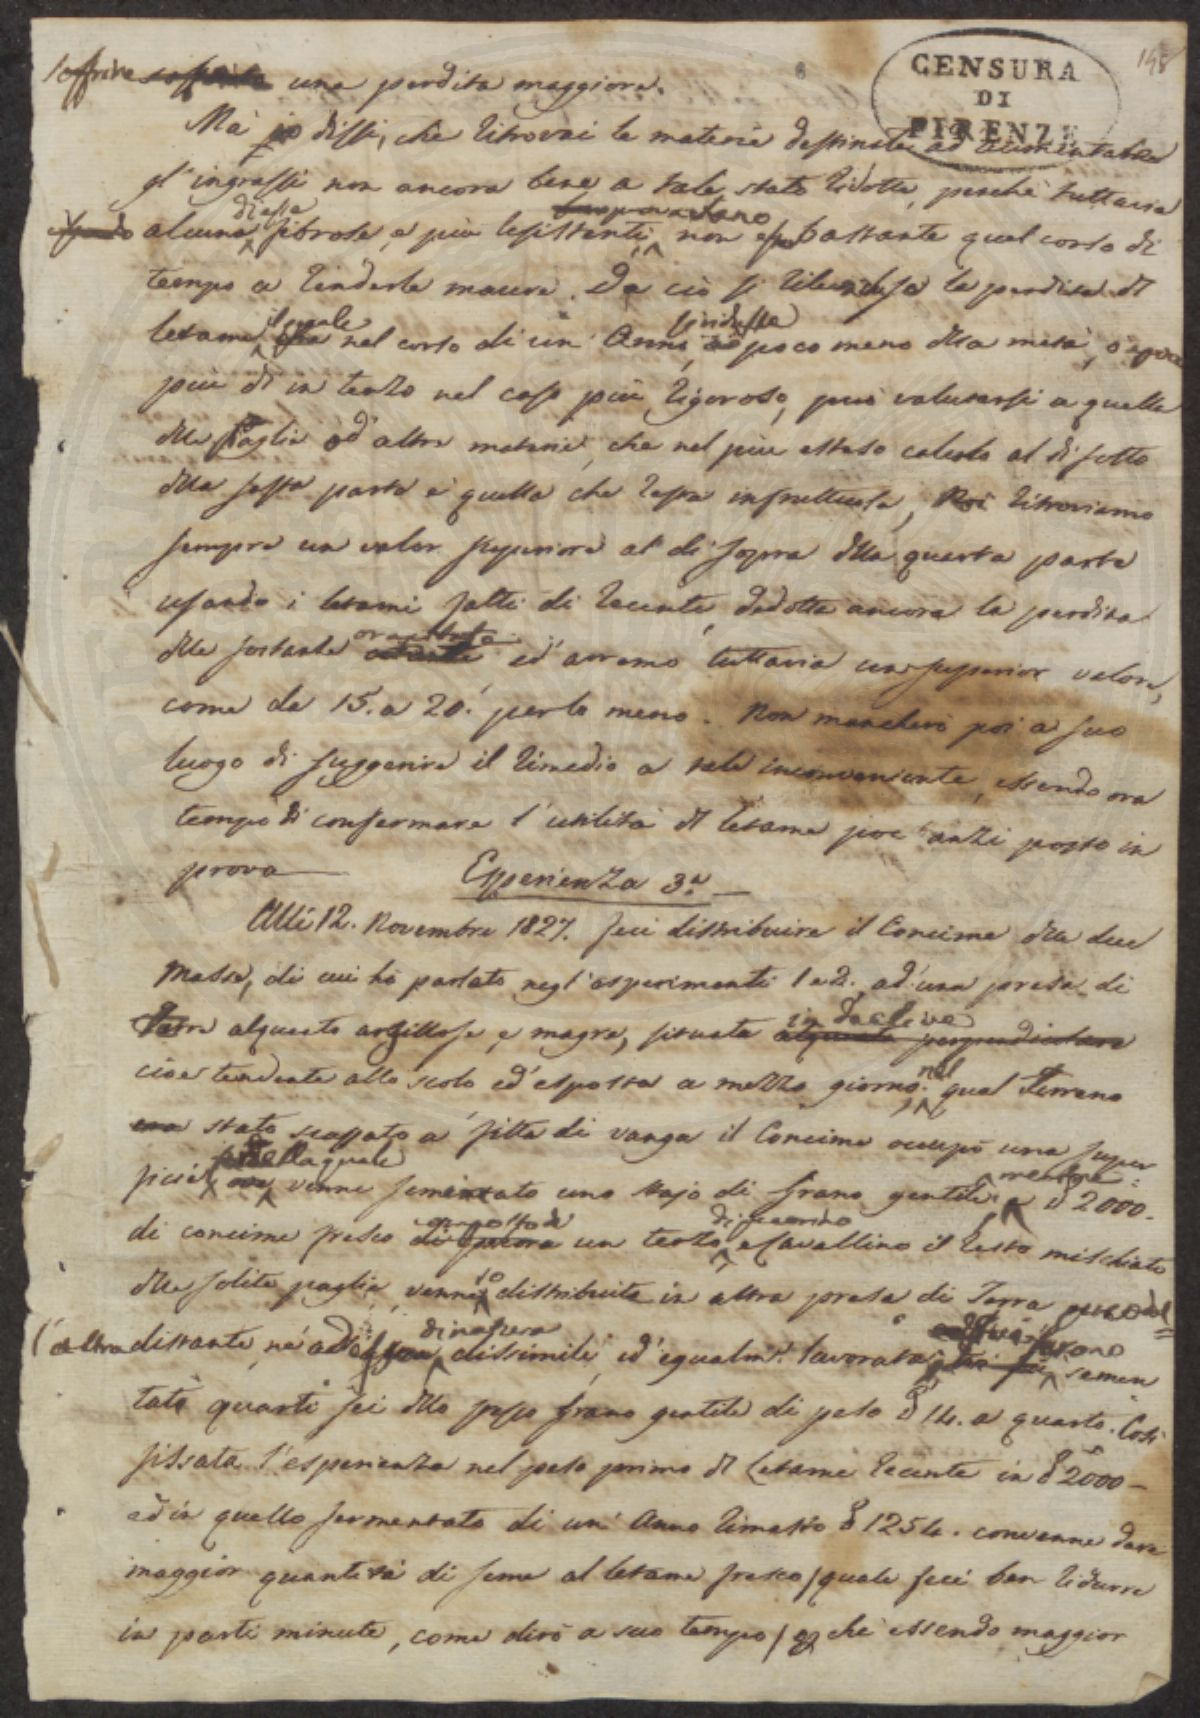 CENSURA
DI
FIRENZE
148
soffrire una perdita maggiore.
Ma io dissi, che ritrovai le materie destinate ad aumentare
gl'ingrassi non ancora bene a tale stato ridotte, perchè tuttavia
alcune di esse fibrose, e più resistenti non bastante quel corso di
tempo a renderle macere. Da ciò si rileva la perdita di
letame il quale nel corso di un' Anno, poco meno della metà, o
più di un terzo nel caso più rigoroso, può valutarsi a quella
della Paglia ed' altre materie, che nel più esteso calcolo al di sotto
della sesta parte è quella che resta infruttuosa, Noi ritroviamo
sempre un valor superiore al di sopra della quarta parte
usando i letami fatti di recente, dedotta ancora la perdita
delle sostanze ed' avremo tuttavia un superior valore,
come da 15. a 20. per lo meno. Non mancherò poi a suo
luogo di suggerire il rimedio a tale inconveniente, essendo ora
tempo di confermare l'utilità di letame poc'anzi posto in
prova
Esperienza 3.a
Alli 12. Novembre 1827. feci distribuire il Concime delle due
Masse, di cui hò parlato negl'esperimenti 1 e 2. ad' una presa di
Terra alquanto argillosa, e magra, situata in declive alquanto perpendicolare
cioè tendente allo scolo ed' esposta a mezzo giorno. nel qual Terreno
era stato scassato a fitta di vanga il Concime occupò una super
ficie, nella quale venne sementato uno stajo di grano gentile, e mentre 2000.
di concime fresco composto di un terzo di pecorino, e Cavallino il resto mischiato
delle solite paglie, venne distribuito in altra presa di Terra
l'altra distante, nè di natura dissimile, ed' egualm.e lavorata, furono semen
tate quarti sei dello stesso grano gentile di peso 14. a quarto. Così
fissata l'esperienza nel peso primo di Letame recente in 2000 -
ed in quello fermentato di un' Anno rimasto 1254. convenne dare
maggior quantità di seme al letame fresco / quale feci ben ridurre
in parti minute, come dirò a suo tempo / chè essendo maggior